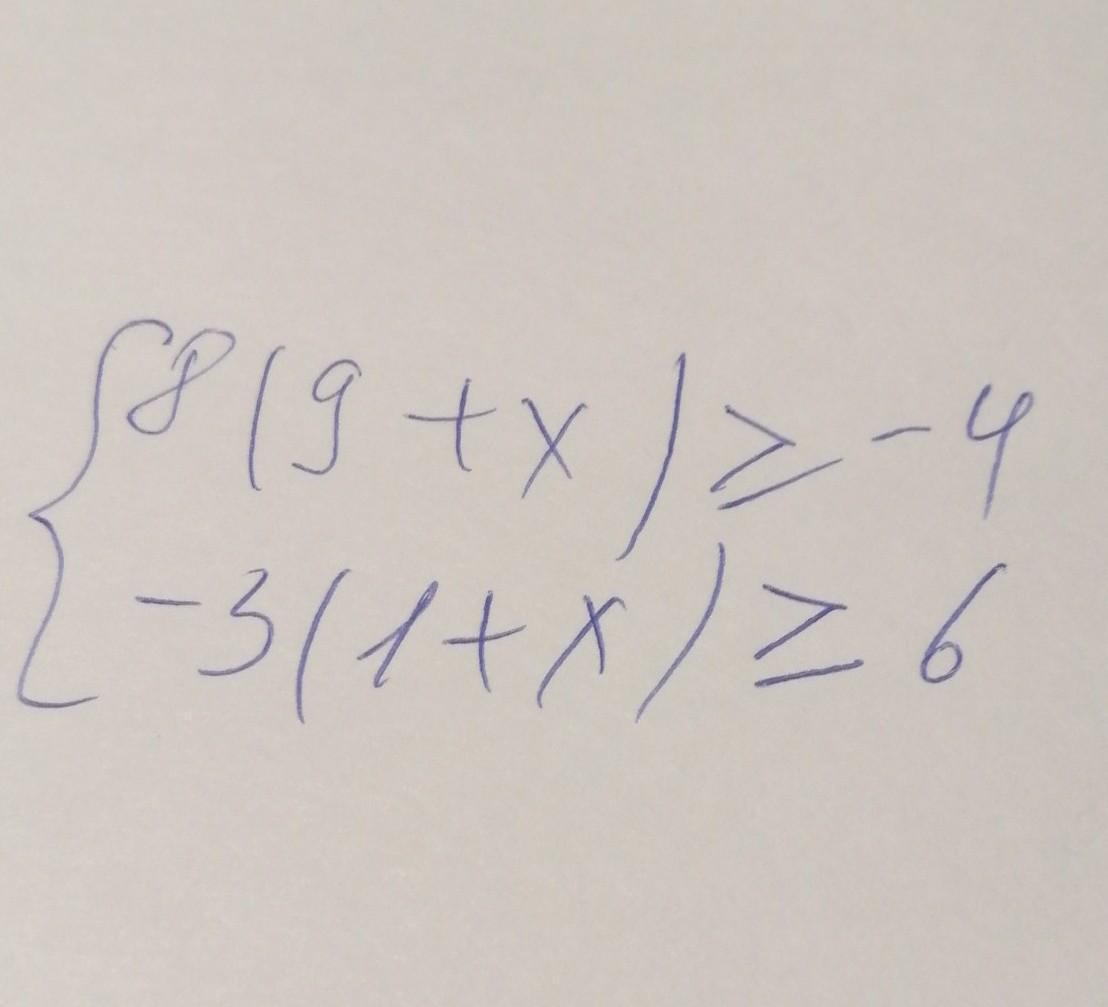 8(9+x)≥-4
-3(1+x)≥6